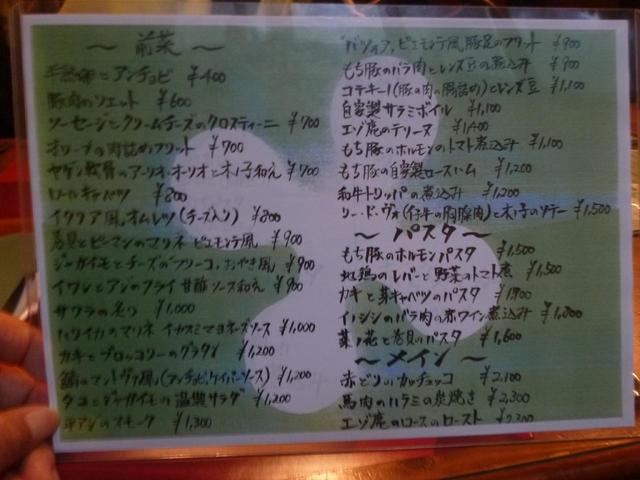 ～ 前菜 ～
半熟卵とアンチョビ ¥400
豚肉のリエット ¥600
ソーセージとクリームチーズのクロスティーニ ¥700
オリーブの肉詰めフリット ¥700
ヤゲン軟骨のアーリオ・オーリオと木ノ子和え ¥700
ロールキャベツ ¥800
イタリア風オムレツ(チーズ入り) ¥800
ピーマンのマリネ ピエモンテ風 ¥900
ジャガイモとチーズのフリーコ,おやき風 ¥900
イワシとアジのフライ 甘酢ソース和え ¥900
サワラの炙り ¥1,000
ヤリイカのマリネ イカスミマヨネーズソース ¥1,000
カキとブロッコリーのグラタン ¥1,200
鯖のマントヴァ風(アンチョビ,ケイパーソース) ¥1,200
タコとジャガイモの温製サラダ ¥1,200
のスモーク ¥1,300
ピエモンテ風 豚足のフリット ¥900
もち豚のバラ肉とレンズ豆の煮込み ¥900
コテキーノ(豚の肉の腸詰め)とレンズ豆 ¥1,100
自家製サラミボイル ¥1,100
エゾ鹿のテリーヌ ¥1,400
もち豚のホルモンのトマト煮込み ¥1,100
もち豚の自家製ロースハム ¥1,200
和牛トリッパの煮込み ¥1,200
リー・ド・ヴォー(仔牛の胸腺肉)と木ノ子のソテー ¥1,500
～ パスタ ～
もち豚のホルモンパスタ ¥1,500
鶏のレバーと野菜のトマト煮 ¥1,500
カキと芽キャベツのパスタ
イノシシのバラ肉の赤ワイン煮込み
菜ノ花と のパスタ ¥1,600
～ メイン ～
赤どりのカッチャトーラ ¥2,100
馬肉のハラミの炭焼き ¥2,300
エゾ鹿のロースのロースト